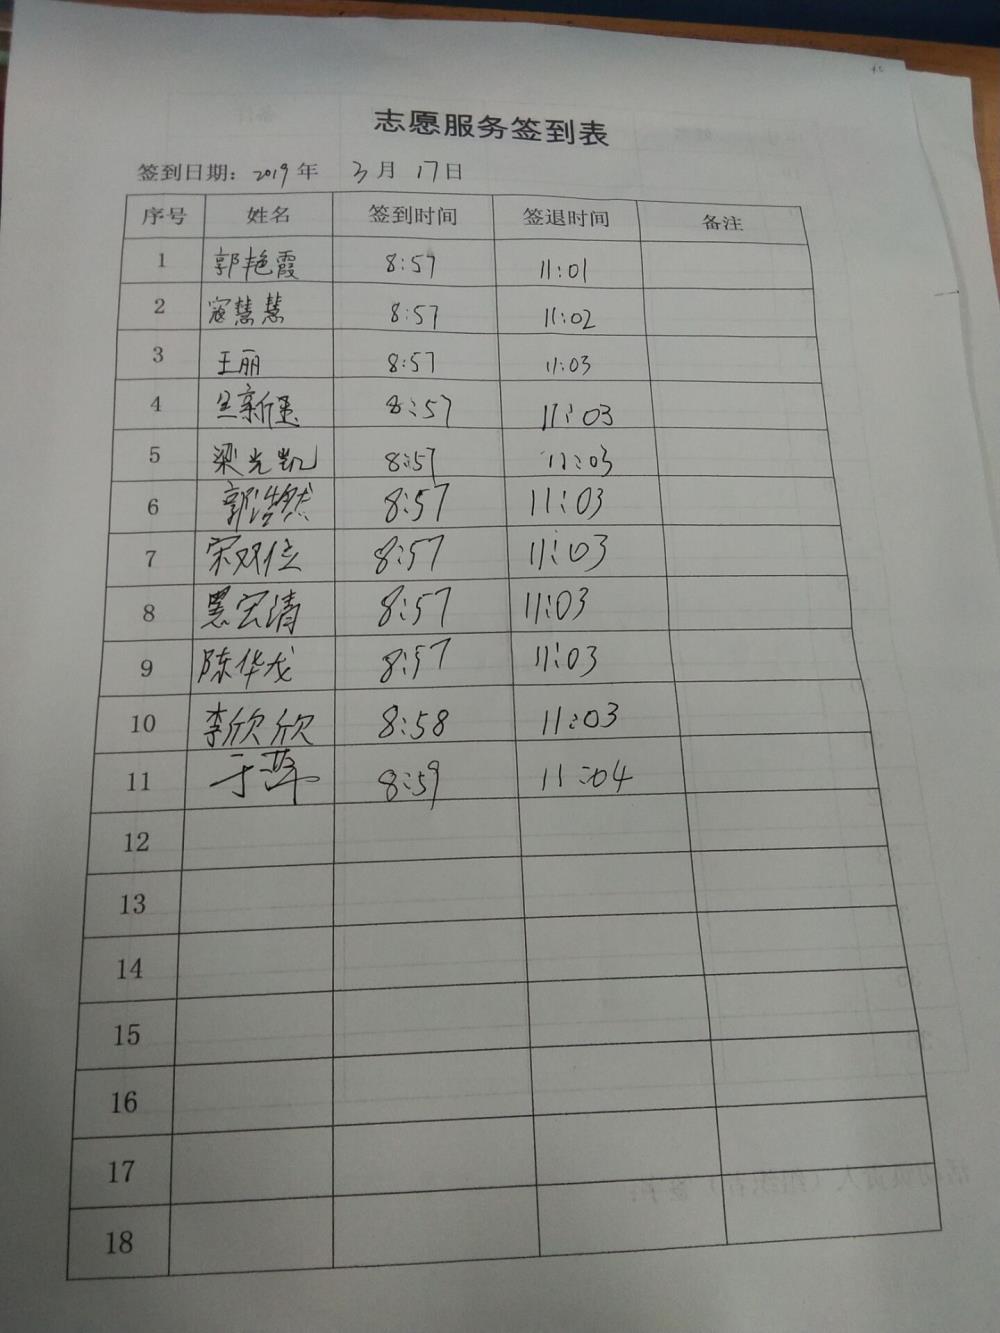 志愿服务签到表
签到日期：2019年 3月 17日
序号 姓名 签到时间 签退时间 备注
1 郭艳霞 8:57 11:01
2 寇慧慧 8:57 11:02
3 王丽 8:57 11:03
4 8:57 11:03
5 梁光凯 8:57 11:03
6 郭浩然 8:57 11:03
7 宋双位 8:57 11:03
8 宏清 8:57 11:03
9 陈华龙 8:57 11:03
10 李欣欣 8:58 11:03
11 于萍 8:59 11:04
12
13
14
15
16
17
18